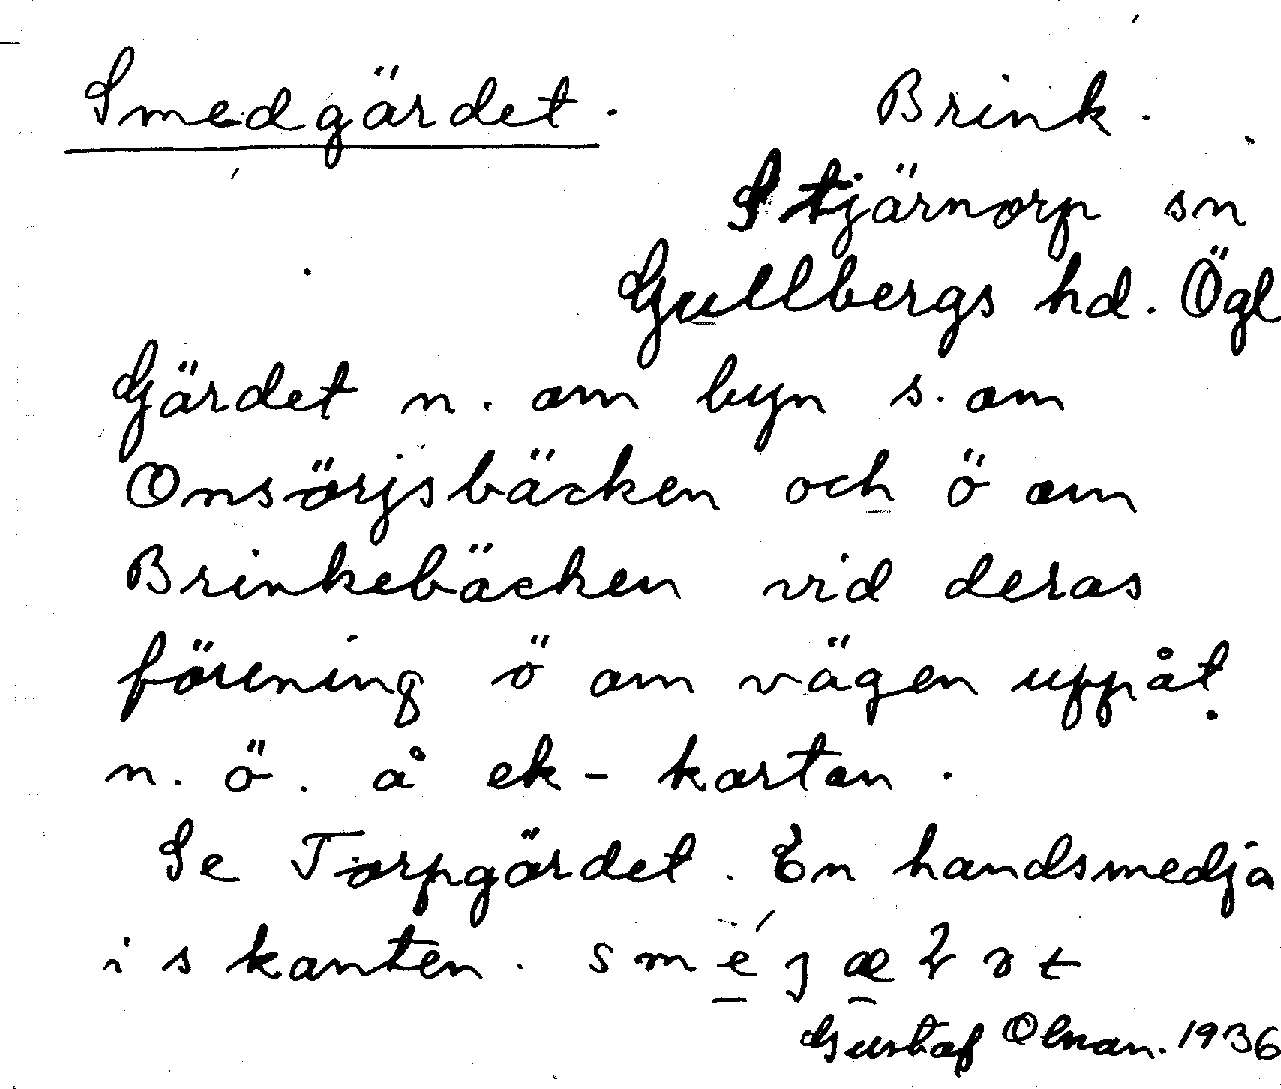 Smedgärdet. Brink.
Stjärnorp sn
Gullbergs hd. Ögl
Gärdet n. om byn s. om
Onsörjsbäcken och ö om
Brinkebäcken vid deras
förening ö om vägen uppåt
n. ö. å ek-kartan.
Se Torpgärdet. En handsmedja
i s kanten.
Gustaf Olman. 1936